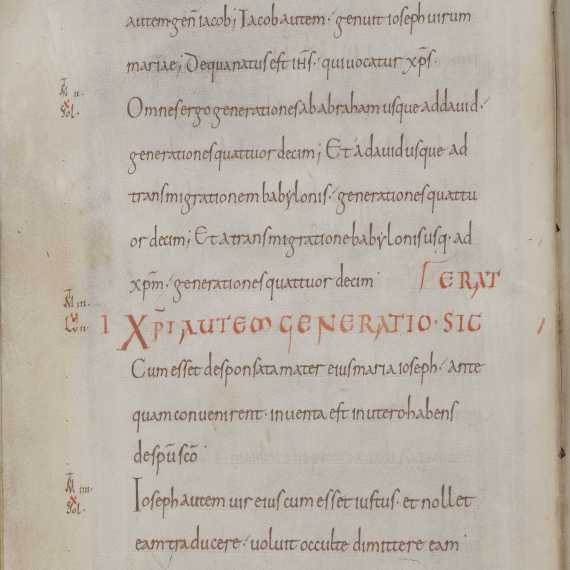 autem gen̄ iacob; Iacob autem · genuit ioseph uirum
mariae; De qua natus est ih̄s · qui uocatur xp̄s·
Omnes ergo generationes ab abraham usque ad dauid·
generationes quattuor decim; Et a dauid usque ad
transmigrationem babylonis· generationes quattu
or decim; Et a transmigratione babylonis usq· ad
xp̄m· generationes quattuor decim
ERAT
I XP̄I AUTEM GENERATIO· SIC
Cum esset desponsata mater eius maria ioseph· ante
quam conuenirent· inuenta est in utero habens
de sp̄u sc̄o
Ioseph autem uir eius cum esset iustus· et nollet
eam traducere· uoluit occulte dimittere eam